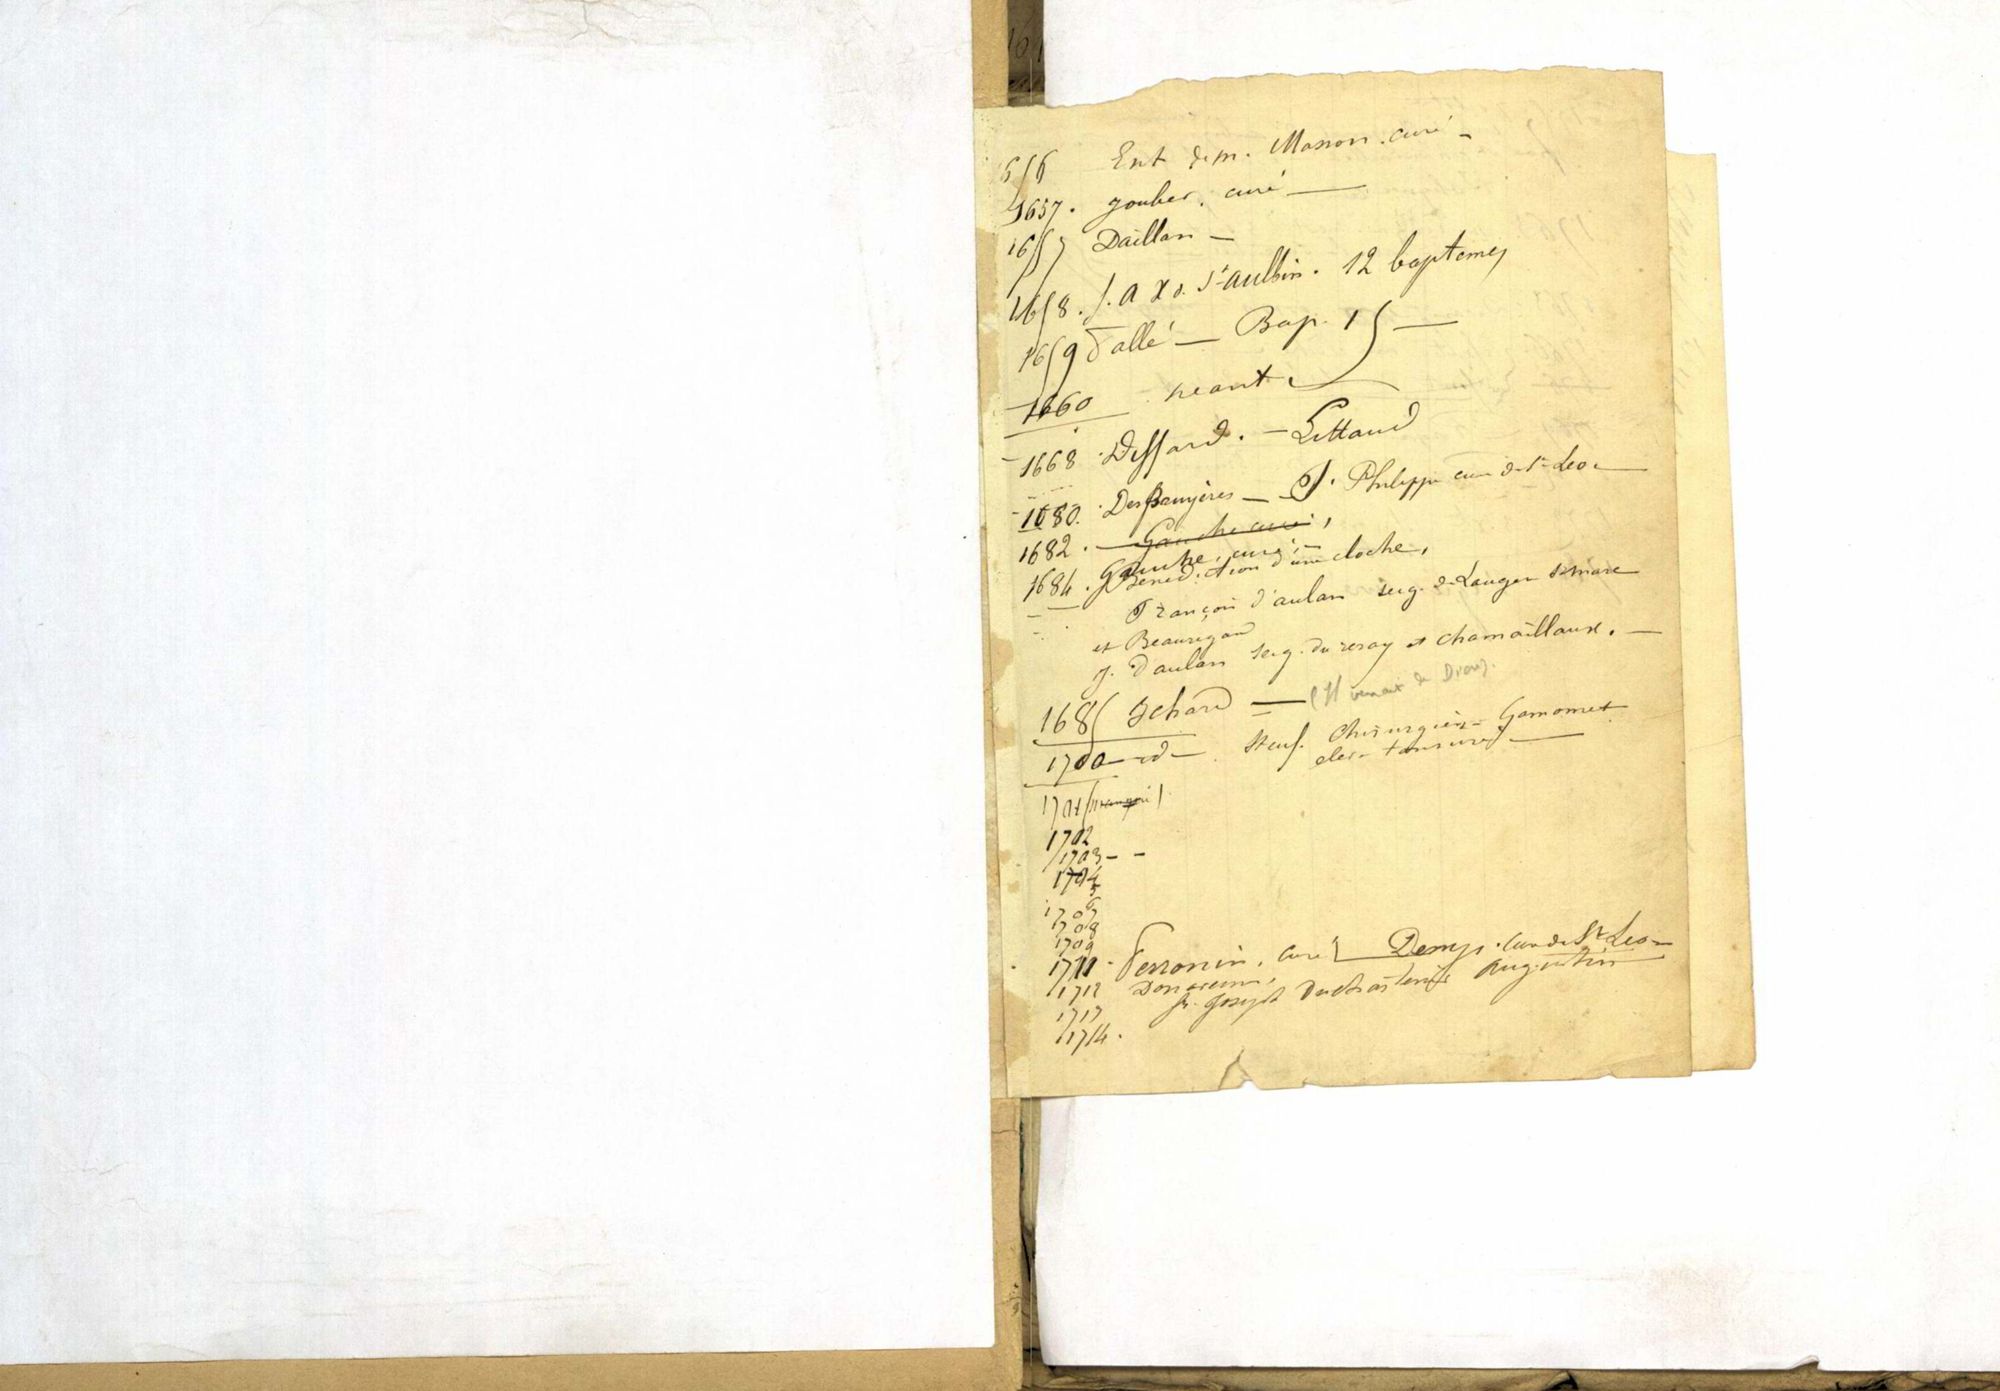 1656 Ent de m. Masson. curé -
1657. Jouber. curé -
1657 Daillan -
1658. J. a X d. St aulbin. 12 baptemes
1659 Vallé - Bap. 15 -
1660 neant.
1668 Deffard. - Littaud
1680. Desbruyères - J. Philippe curé de St Leo -
1682. - Gauche curé,
1684. Gauche, curé, -
Benediction d'une cloche,
François d'aulan seig. de Lauger St mare
et Beauregard
J. Daulan seig. du et chamaillaux. -
1685 Ichard - ( venant de Diou).
1700 - id - Chirurgien - Gamomet
clerc tonsuré -
1701 (manque)
1702
1703 - -
1704
5
6
1707
1708
1709
1711 - Perronin, curé Denys. Curé de St Leo -
1712
fr. Joseph Augustin
1713
1714.